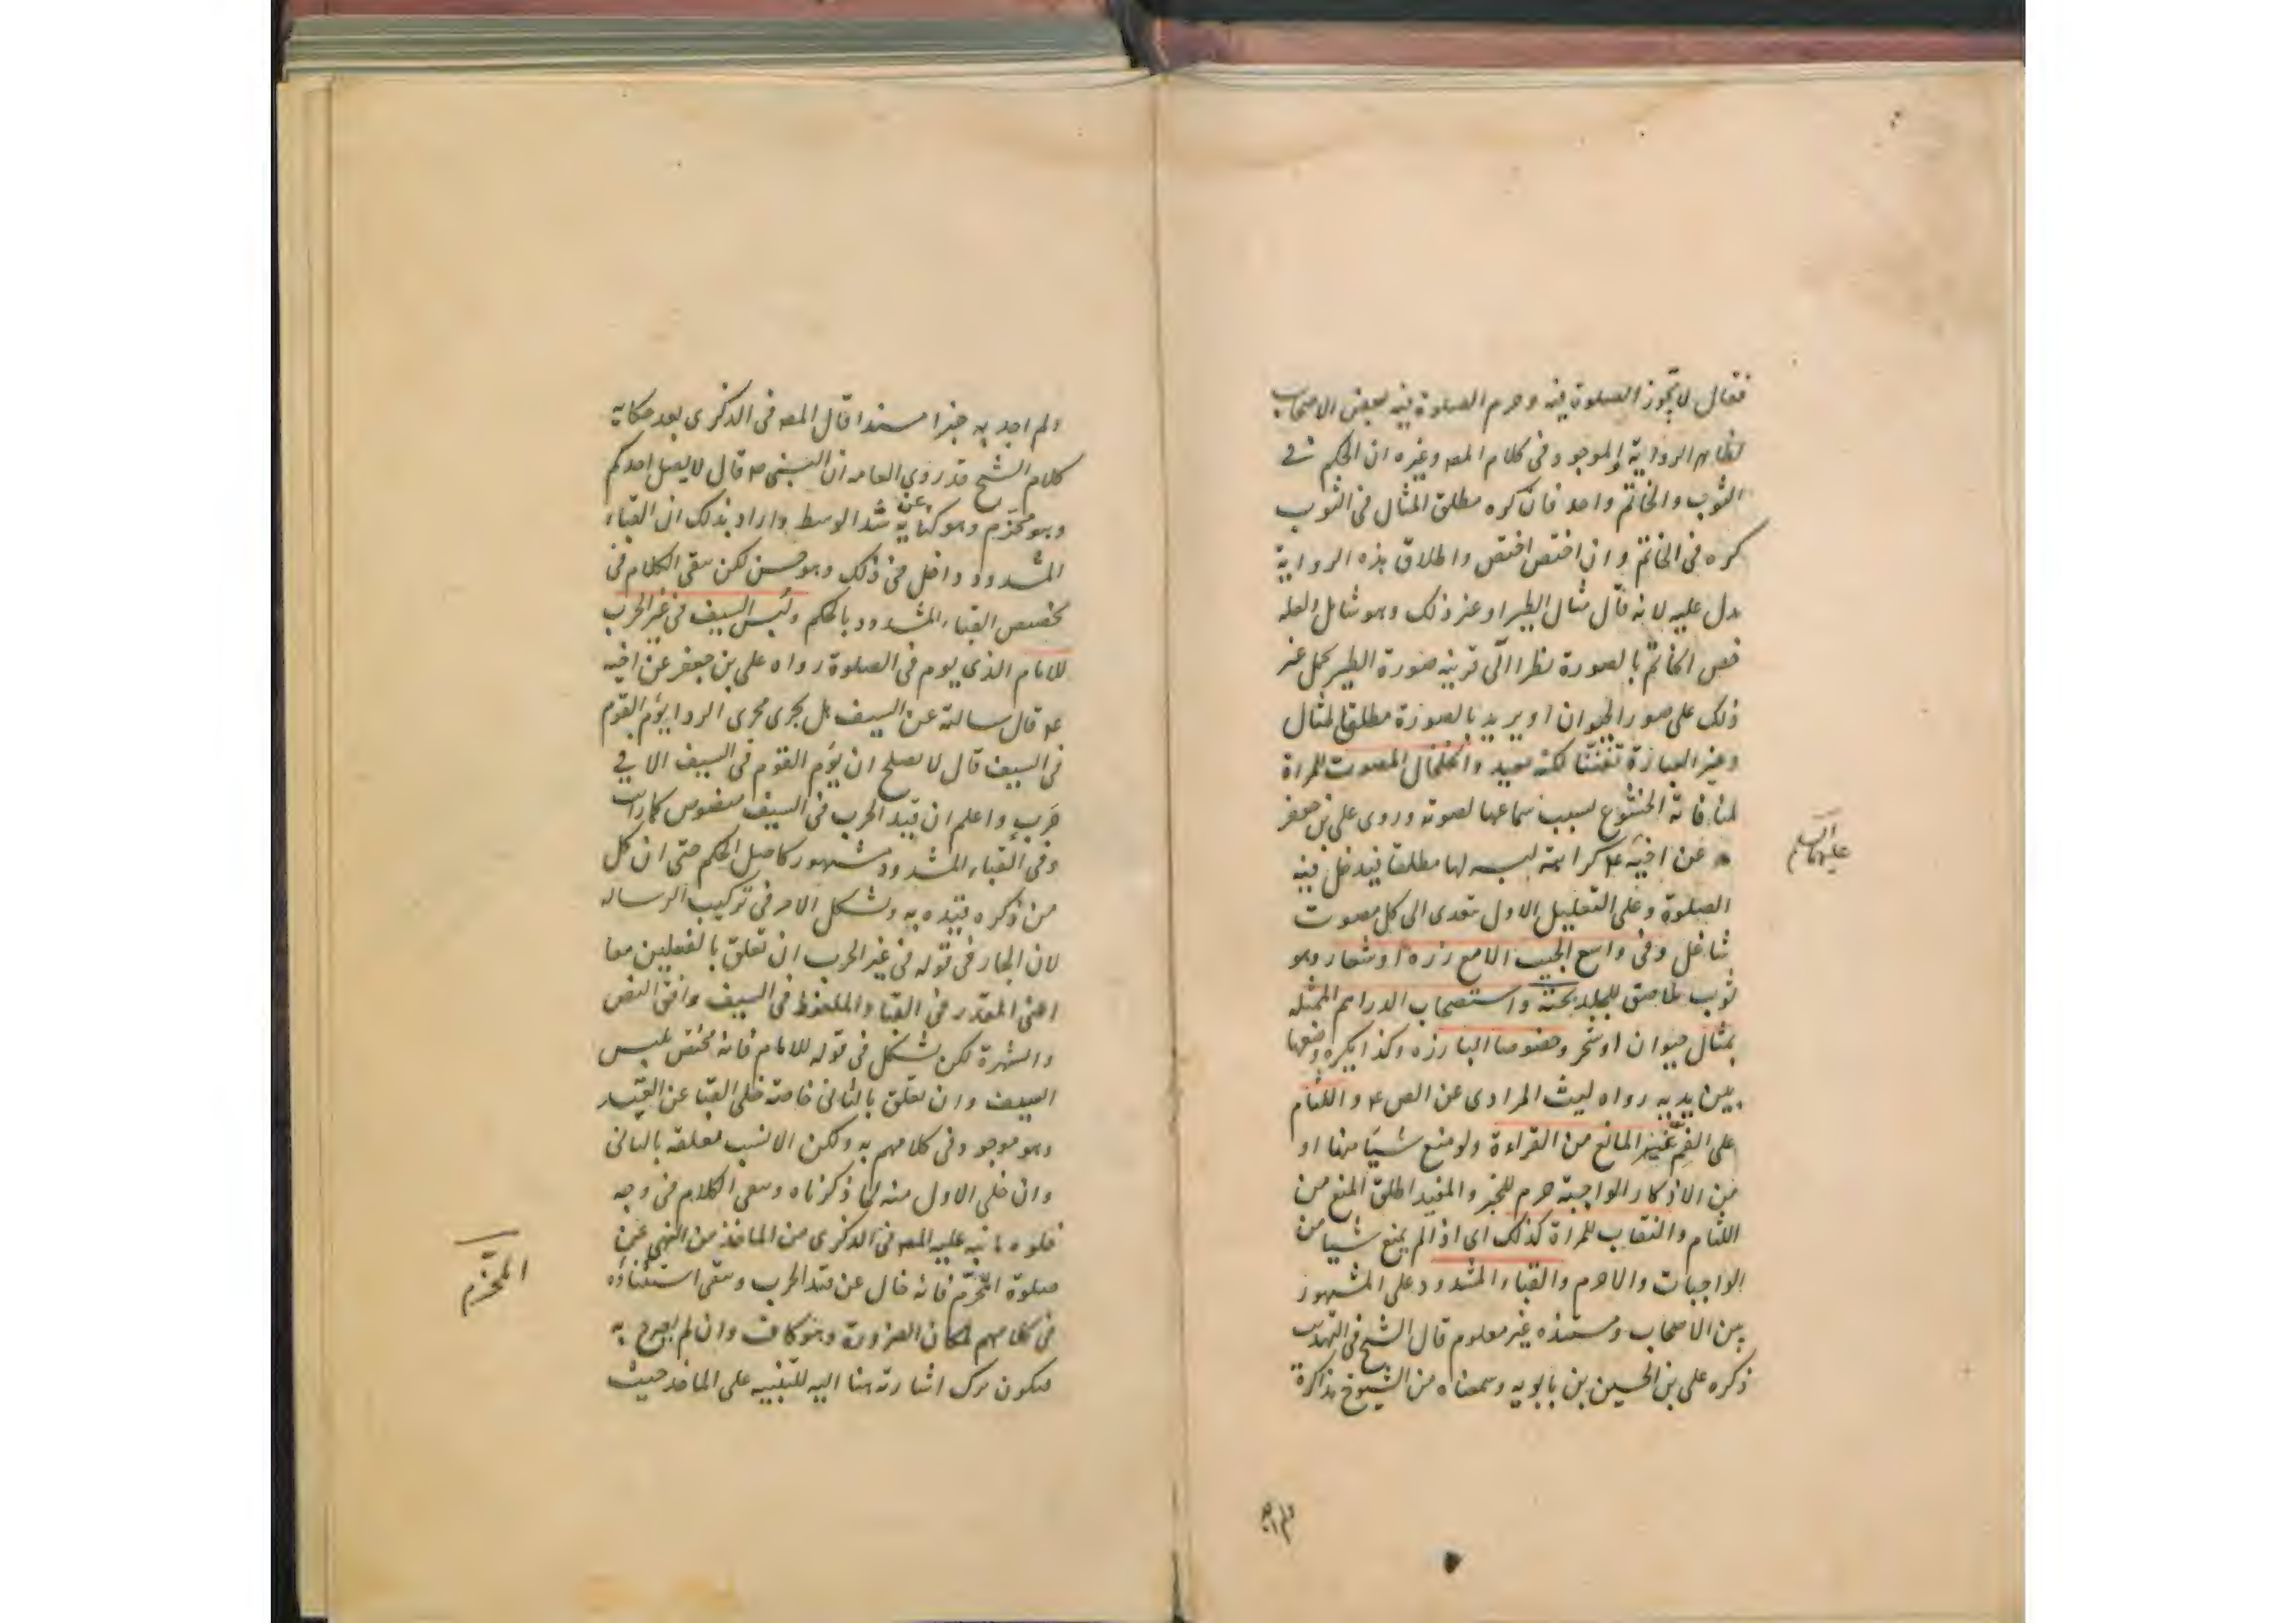 فقال لا تجوز الصلوة فيه وحرم الصلوة فيه بعض الاصحاب
لظاهر الرواية والموجود في كلام المصـ وغيره ان الحكم في
الثوب والخاتم واحد فان كره مطلق المثال في الثوب
كره في الخاتم وان اختص اختص واطلاق هذه الرواية
يدل عليه لانه قال مثال الطير او غير ذلك وهو شامل ولعله
خص الخاتم بالصورة نظرا الى قرينه صورة الطير يحمل غير
ذلك على صور الحيوان او يريد بالصورة مطلق المثال
وغير العبارة تفننا لكنه بعيد والخلخال المصوت للمراة
لمنافاته الخشوع بسبب سماعها لصوته وروى على بن جعفر
عن اخيه ع كراهته لبسه لها مطلقا فيدخل فيه
عليهما السلام
الصلوة وعلى التعليل الاول تعدى الى كل مصوت
شاغل وفي واسع الجيب الا مع زره او شعار وهو
ثوب يلاصق للجلد تحته واستصحاب الدراهم الممثله
بمثال حيوان او شجر وخصوصا البارزه وكذا يكره وضعها
بين يديه رواه ليث المرادى عن الص ع واللثام
على الفم غير المانع من القراءة ولو منع شيئا منها او
من الاذكار الواجبة حرم للخبر والمفيد اطلق المنع من
اللثام والنقاب للمراة كذلك اى اذا لم يمنع شيئا من
الواجبات والا حرم والقباء المشدود على المشهور
بين الاصحاب ومستنده غير معلوم قال الشيخ في التهذيب
ذكره على بن الحسين بن بابويه وسمعناه من الشيوخ مذاكرة
ولم اجد به خبرا مسندا قال المصـ في الذكرى بعد حكاية
كلام الشيخ قد روى العامه ان النبى ص قال لا يصل احدكم
وهو محزم وهو كناية عن شد الوسط واراد بذلك ان القباء
المشدود داخل في ذلك وهو حسن لكن يبقى الكلام في
تخصيص القباء المشدود بالحكم ولبس السيف في غير الحرب
للامام الذى يوم في الصلوة رواه على بن جعفر عن اخيه
ع قال سالته عن السيف هل يجرى مجرى الردا يؤم القوم
في السيف قال لا يصلح ان يؤم القوم في السيف الا في
حرب واعلم ان قيد الحرب في السيف منصوص كما رايت
وفي القباء المشدود مشهور كاصل الحكم حتى ان كل
من ذكره قيده به ويشكل الامر في تركيب الرساله
لان الجار في قوله في غير الحرب ان تعلق بالفعلين معا
اعنى المقدر في القبا والملفوظ في السيف وافق النص
والشهرة لكن يشكل في قوله للامام فانه مختص بلبس
السيف وان تعلق بالثانى خاصة خلى القبا عن القيد
وهو موجود في كلامهم به ولكن الانسب تعلقه بالثانى
وان خلى الاول منه لما ذكرناه ويبقى الكلام في وجه
خلوه ما نبه عليه المصـ في الذكرى من الماخذ من النهى عن
صلوة المحزم فانه خال عن قيد الحرب ويبقى استثناؤه
المحزم
في كلامهم لمكان الضرورة وهو كاف وان لم يصرح به
فيكون ترك اشارته هنا اليه للتنبيه على الماخذ حيث